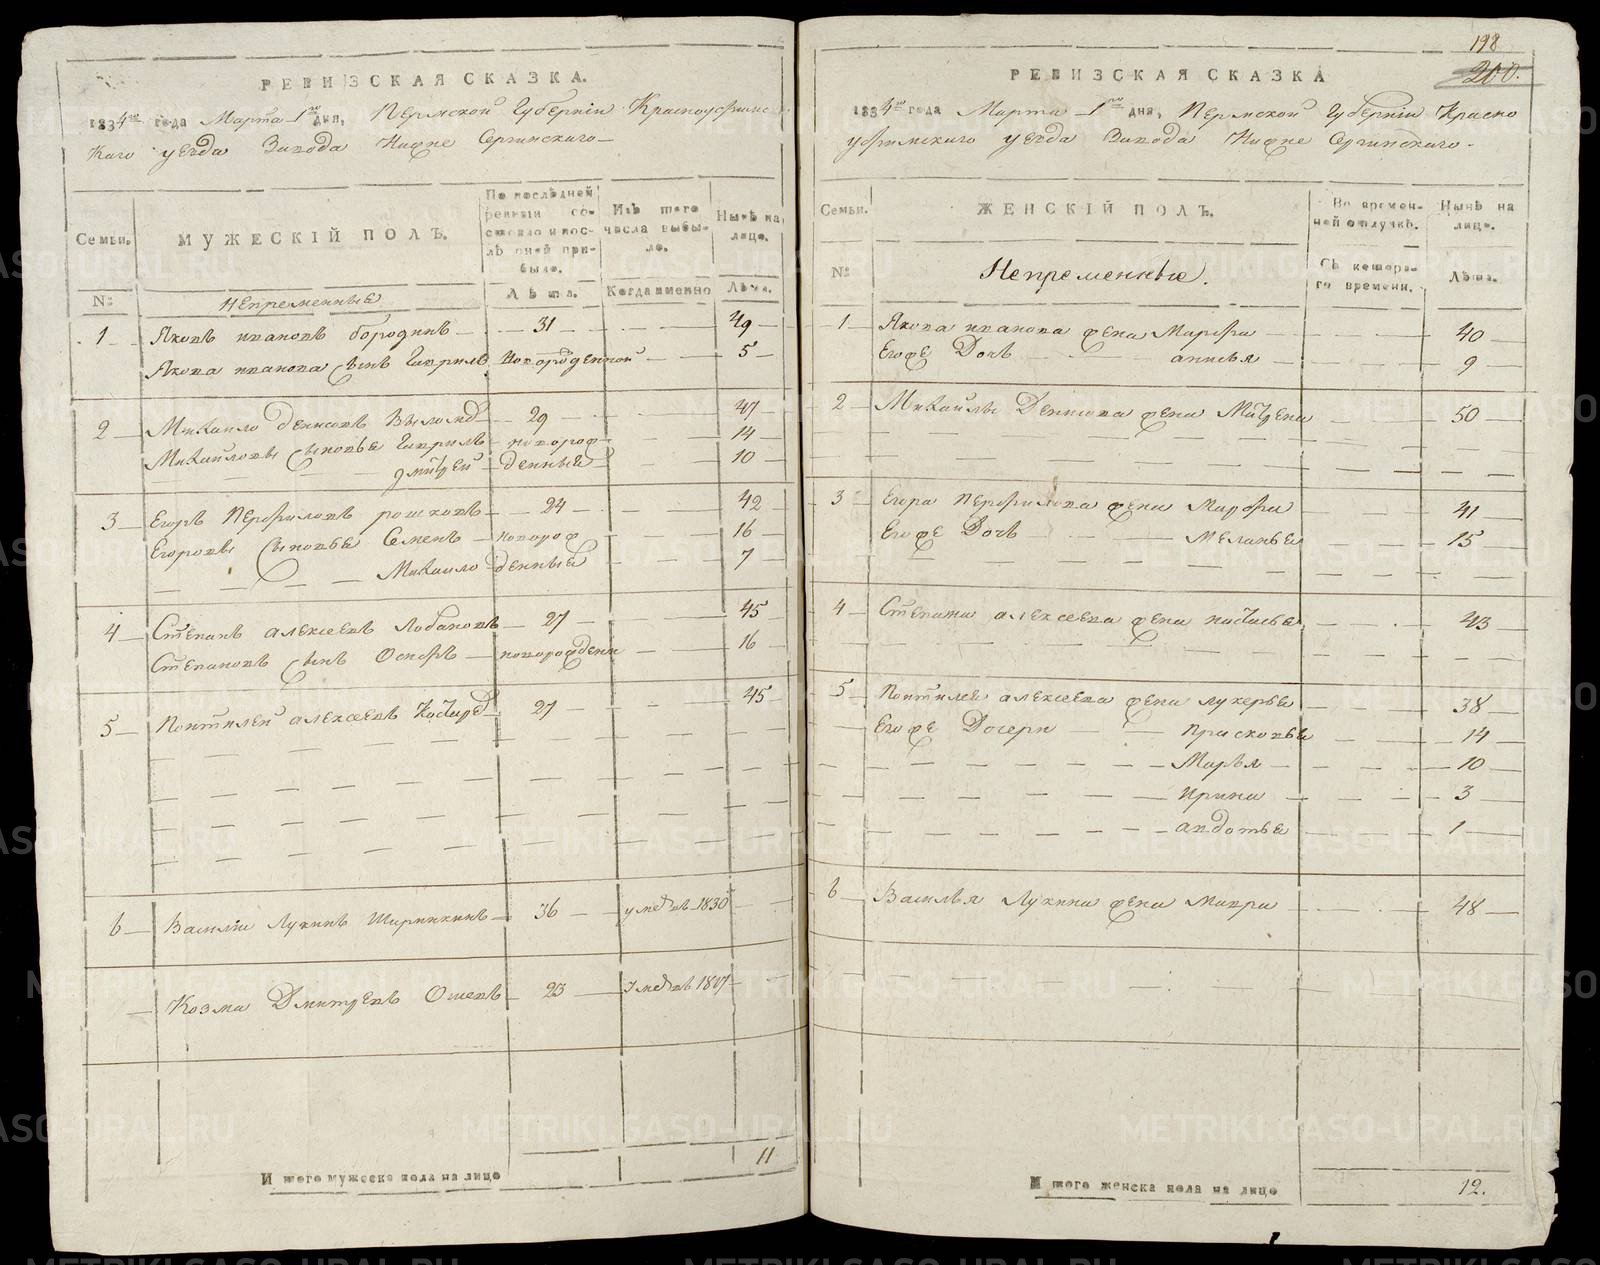 РЕВИЗСКАЯ СКАЗКА.
1834го года Марта 1го дня, Пермской Губернии Красноуфимс
каго уезда Завода Нижне Сергинскаго
Семьи.
МУЖЕСКІЙ ПОЛЪ.
По послѣдней ревизіи состояло и послѣ оной прибыло.
Изъ того числа выбыло.
Нынѣ на лицо.
№
Непременные
Лѣта.
Когда именно
Лѣта.
1 Яковъ ивановъ бородинъ 31 49
Якова иванова сынъ Гаврилъ Новорожденной 5
2 Михаило денисовъ 29 47
Михайловы сыновья Гаврилъ новорож 14
дмитрей денные 10
3 Егоръ Перфиловъ рошковъ 24 42
Егоровы сыновья Семенъ новорож 16
Михаило денные 7
4 Степанъ алексеевъ Лобановъ 27 45
Степановъ сынъ Осипъ новорожденн 16
5 Понтилей алексеевъ 27 45
6 Василій Лукинъ Ширинкинъ 36 умеръ въ 1830
Козма Дмитревъ Ошевъ 23 умеръ въ 1817
Итого мужеска пола на лицо 11
198
200.
РЕВИЗСКАЯ СКАЗКА
1834го года Марта 1го дня, Пермской Губернии Красно
уфимскаго уезда Завода Нижне Сергинскаго
Семьи.
ЖЕНСКІЙ ПОЛЪ.
Во временной отлучкѣ.
Нынѣ на лицо.
№
Непременные.
Съ котораго времени.
Лѣта.
1 Якова иванова жена Марфа 40
Егоже Дочь анисья 9
2 Михайлы Денисова жена Матрена 50
3 Егора Перфилова жена Марфа 41
Егоже Дочь Меланья 15
4 Степана алексеева жена настасья 43
5 Понтилея алексеева жена лукерья 38
Егоже Дочери Прасковья 14
Марья 10
Ирина 3
авдотья 1
6 Василья Лукина жена Мавра 48
Итого женска пола на лицо 12.
METRIKI.GASO-URAL.RU